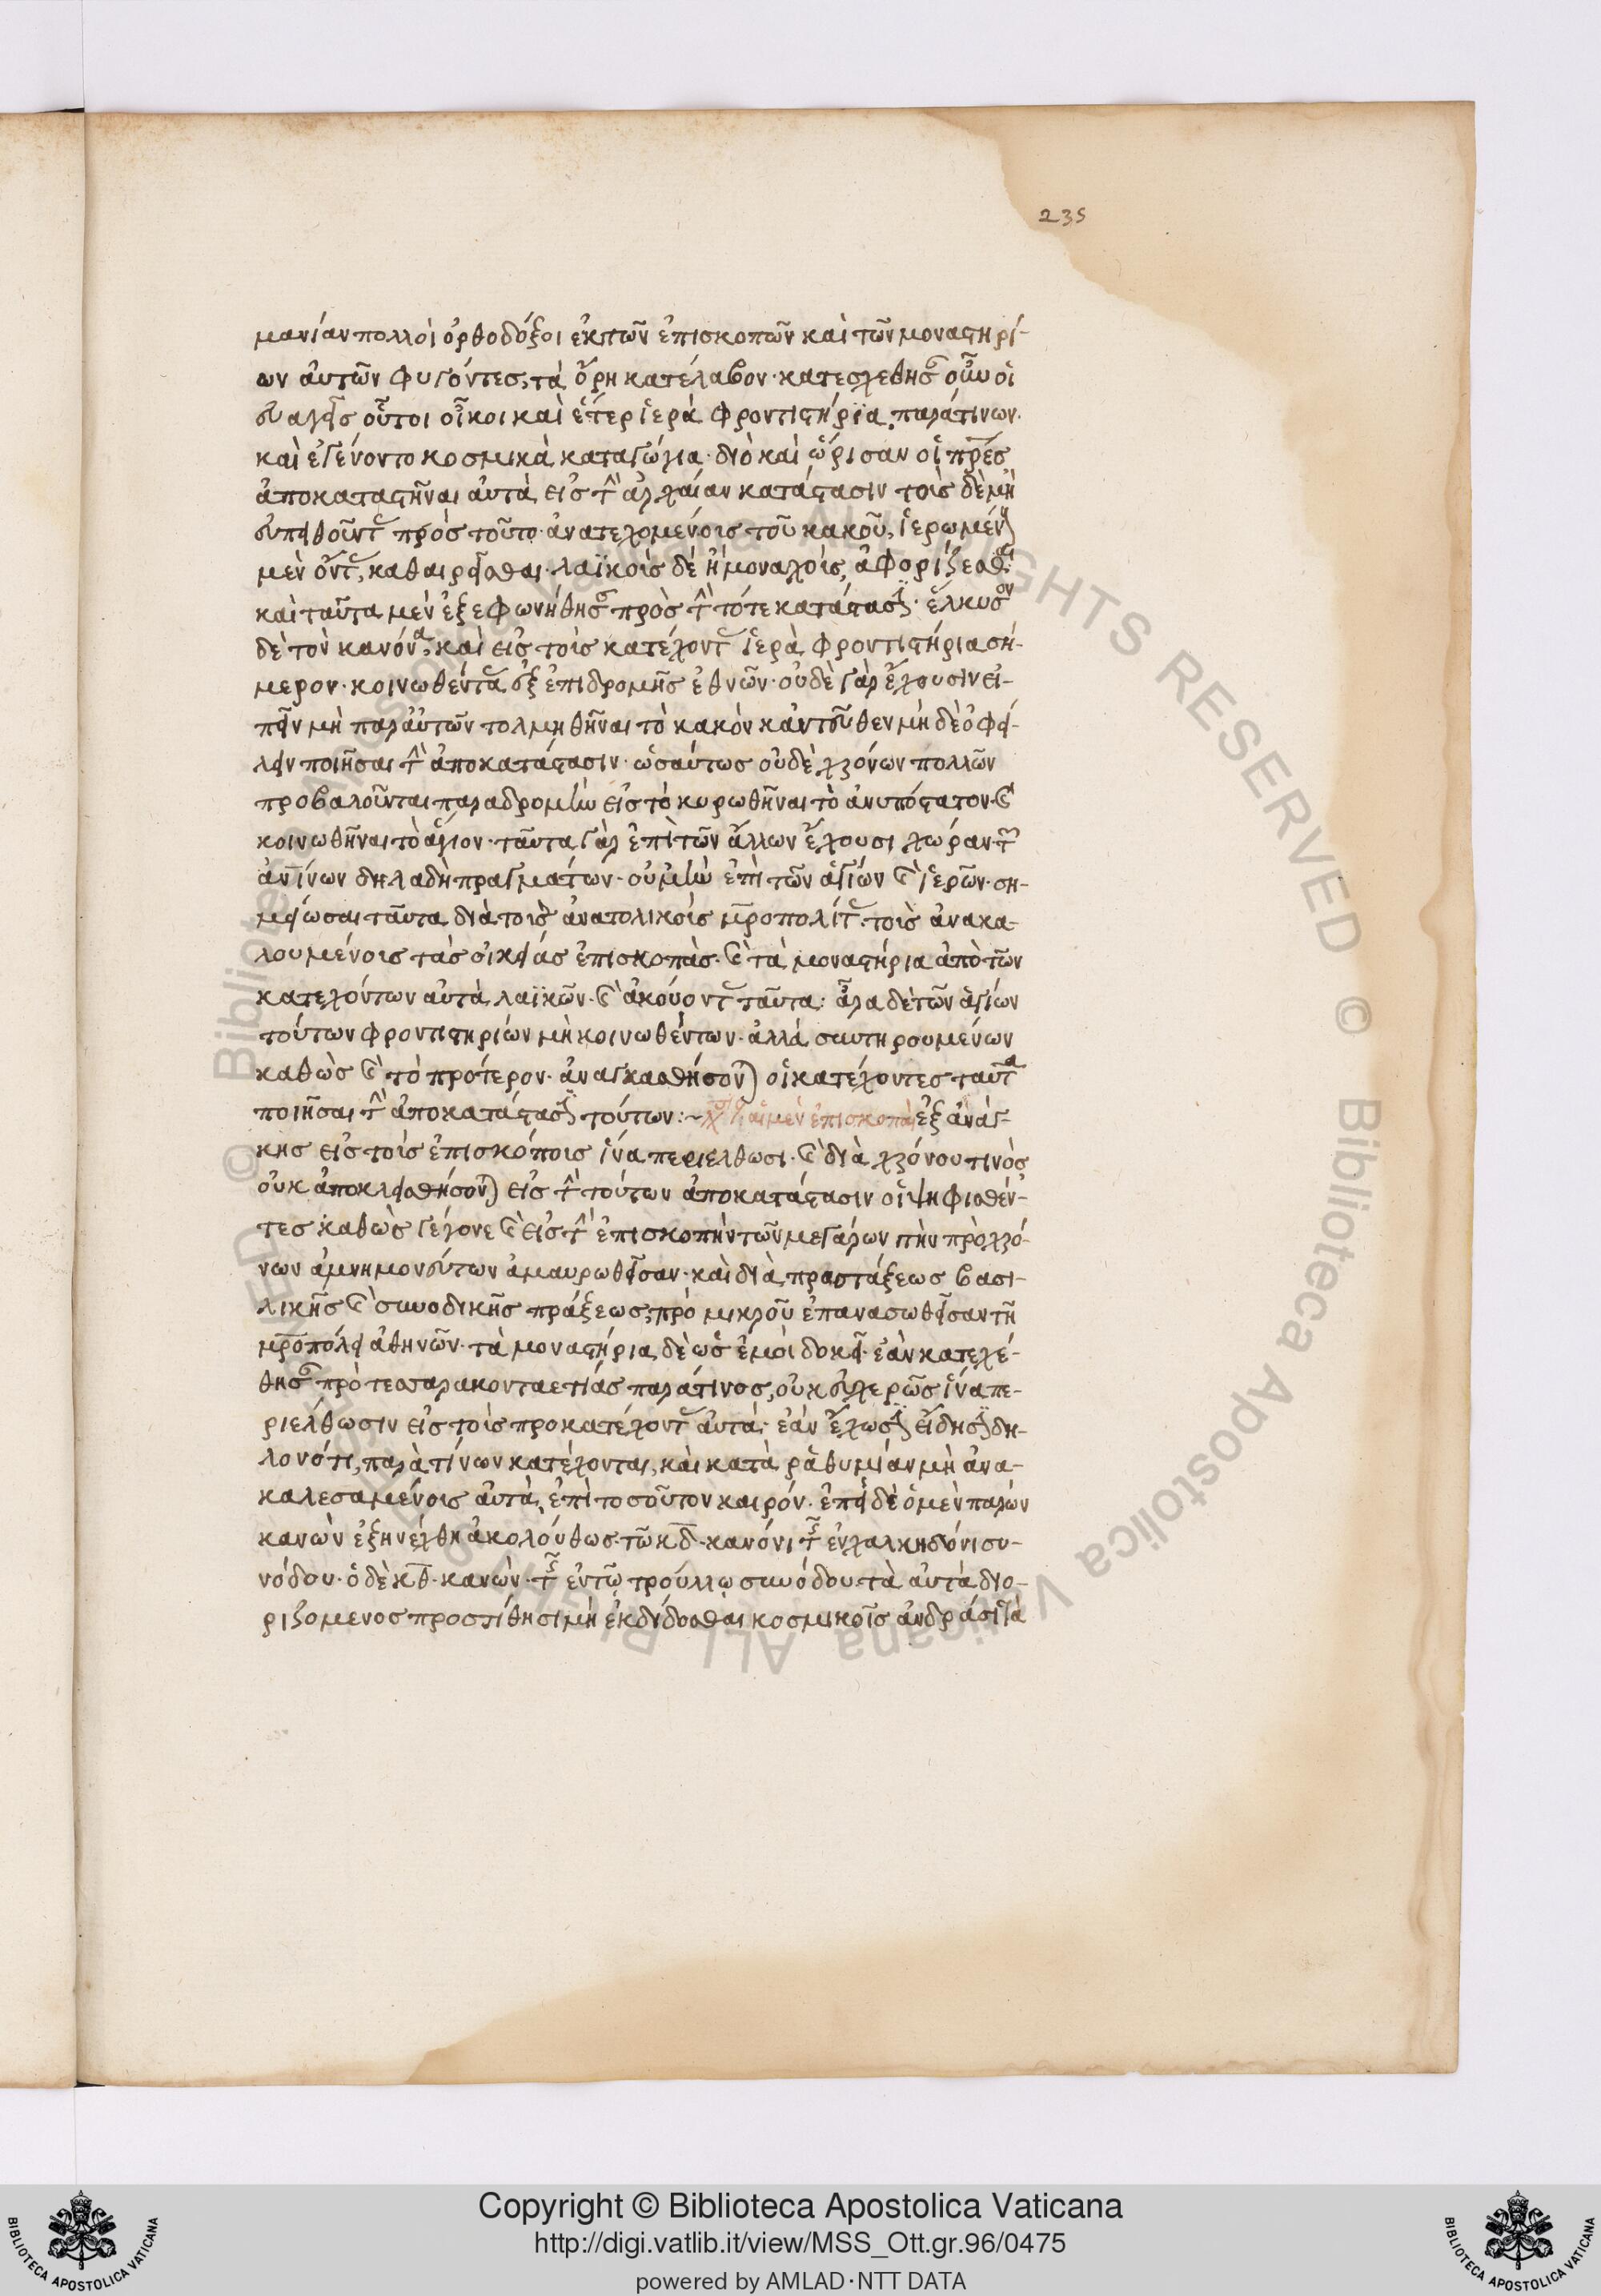 235
μανίαν πολλοὶ ὀρθοδόξοι ἐκ τῶν ἐπισκοπῶν καὶ τῶν μοναστηρί-
ων αὐτῶν φυγόντες, τὰ ὄρη κατέλαβον· κατεσχέθησαν οὖν οἱ
εὐαγεῖς οὗτοι οἶκοι καὶ ἕτερ ἱερὰ φροντιστήρϊα παρά τινων.
καὶ ἐγένοντο κοσμικὰ καταγώγια· διὸ καὶ ὥρισαν οἱ πρες
ἀποκαταστῆναι αὐτὰ εἰς τὴν ἀρχαίαν κατάστασιν τοῖς δὲ μὴ
εὐπειθοῦντας πρὸς τοῦτο· ἀνατεχομένοις τοῦ κακοῦ, ἱερωμένους
μὲν ὄντας, καθαιρεῖσθαι· λαϊκοῖς δὲ ἢ μοναχοῖς, ἀφορίζεσθαι
καὶ ταῦτα μὲν ἐξεφωνήθησαν πρὸς τὴν τότε κατάστασιν· ἕλκυσον
δὲ τὸν κανόνα, καὶ εἰς τοῖς κατέχοντας ἱερὰ φροντιστήρια σή-
μερον· κοινωθέντα ἐξ ἐπιδρομῆς ἐθνῶν· οὐδὲ γὰρ ἔχουσιν εἰ-
πεῖν μὴ παρ αὐτῶν τολμηθῆναι τὸ κακὸν κἀντεῦθεν μὴ δὲ ὀφεί-
λειν ποιῆσαι τὴν ἀποκατάστασιν· ὡσαύτως οὐδὲ χρόνων πολλῶν
προβαλοῦνται παραδρομὴν εἰς τὸ κυρωθῆναι τὸ ἀνυπόστατον· καὶ
κοινωθῆναι τὸ ἅγιον· ταῦτα γὰρ ἐπὶ τῶν ἄλλων ἔχουσι χώραν τῶν
ἀνίνων δηλαδὴ πραγμάτων· οὐ μὴν ἐπὶ τῶν ἁγίων καὶ ἱερῶν· ση-
μείωσαι ταῦτα διὰ τοῖς ἀνατολικοῖς μροπολίτας· τοῖς ἀνακα-
λουμένοις τὰς οἰκείας ἐπισκοπάς· καὶ τὰ μοναστήρια ἀπὸ τῶν
κατεχόντων αὐτὰ λαϊκῶν· καὶ ἀκούοντας ταῦτα: ἆρα δὲ τῶν ἁγίων
τούτων φροντιστηρίων μὴ κοινωθέντων· ἀλλὰ συντηρουμένων
καθὼς καὶ τὸ πρότερον· ἀναγκασθήσονται οἱ κατέχοντες ταῦτα
ποιῆσαι τὴν ἀποκατάστασιν τούτων:~ αἱ μὲν ἐπισκοπαὶ ἐξ ἀνάγ-
κης εἰς τοῖς ἐπισκόποις ἵνα περιέλθωσι· καὶ διὰ χρόνου τινὸς
οὐκ ἀποκλεισθήσονται εἰς τὴν τούτων ἀποκατάστασιν οἱ ψηφισθέν-
τες καθὼς γέγονε καὶ εἰς τὴν ἐπισκοπὴν τῶν μεγάρων τὴν πρὸ χρό-
νων ἀμνημονεύτων ἀμαυρωθεῖσαν· καὶ διὰ προστάξεως βασι-
λικῆς καὶ συνοδικῆς πράξεως, πρὸ μικροῦ ἐπανασωθεῖσαν τῆ
μροπόλει ἀθηνῶν· τὰ μοναστήρια δὲ ὡς ἐμοὶ δοκεῖ· ἐὰν κατεσχέ-
θησαν πρὸ τεσσαρακονταετίας παρά τινος, οὐκ εὐχερῶς ἵνα πε-
ριέλθωσιν εἰς τοῖς προκατέχοντας αὐτά· ἐὰν ἔχωσιν εἴδησιν δη-
λονότι, παρὰ τίνων κατέχονται, καὶ κατὰ ῥαθυμίαν μὴ ἀνα-
καλεσαμένοις αὐτὰ, ἐπὶ τοσοῦτον καιρόν· ἐπεὶ δὲ ὁ μὲν παρὼν
κανὼν ἐξηνέχθη ἀκολούθως τῶ κδ κανόνι τῆς ἐν χαλκηδόνι συ-
νόδου· ὁ δὲ κθ κανὼν· τῆς ἐν τῷ τρούλλῳ συνόδου τὰ αὐτὰ διο-
ριζόμενος προστίθησι μὴ ἐκδίδοσθαι κοσμικοῖς ἀνδράσι τὰ
Copyright © Biblioteca Apostolica Vaticana
http://digi.vatlib.it/view/MSS_Ott.gr.96/0475
powered by AMLAD·NTT DATA